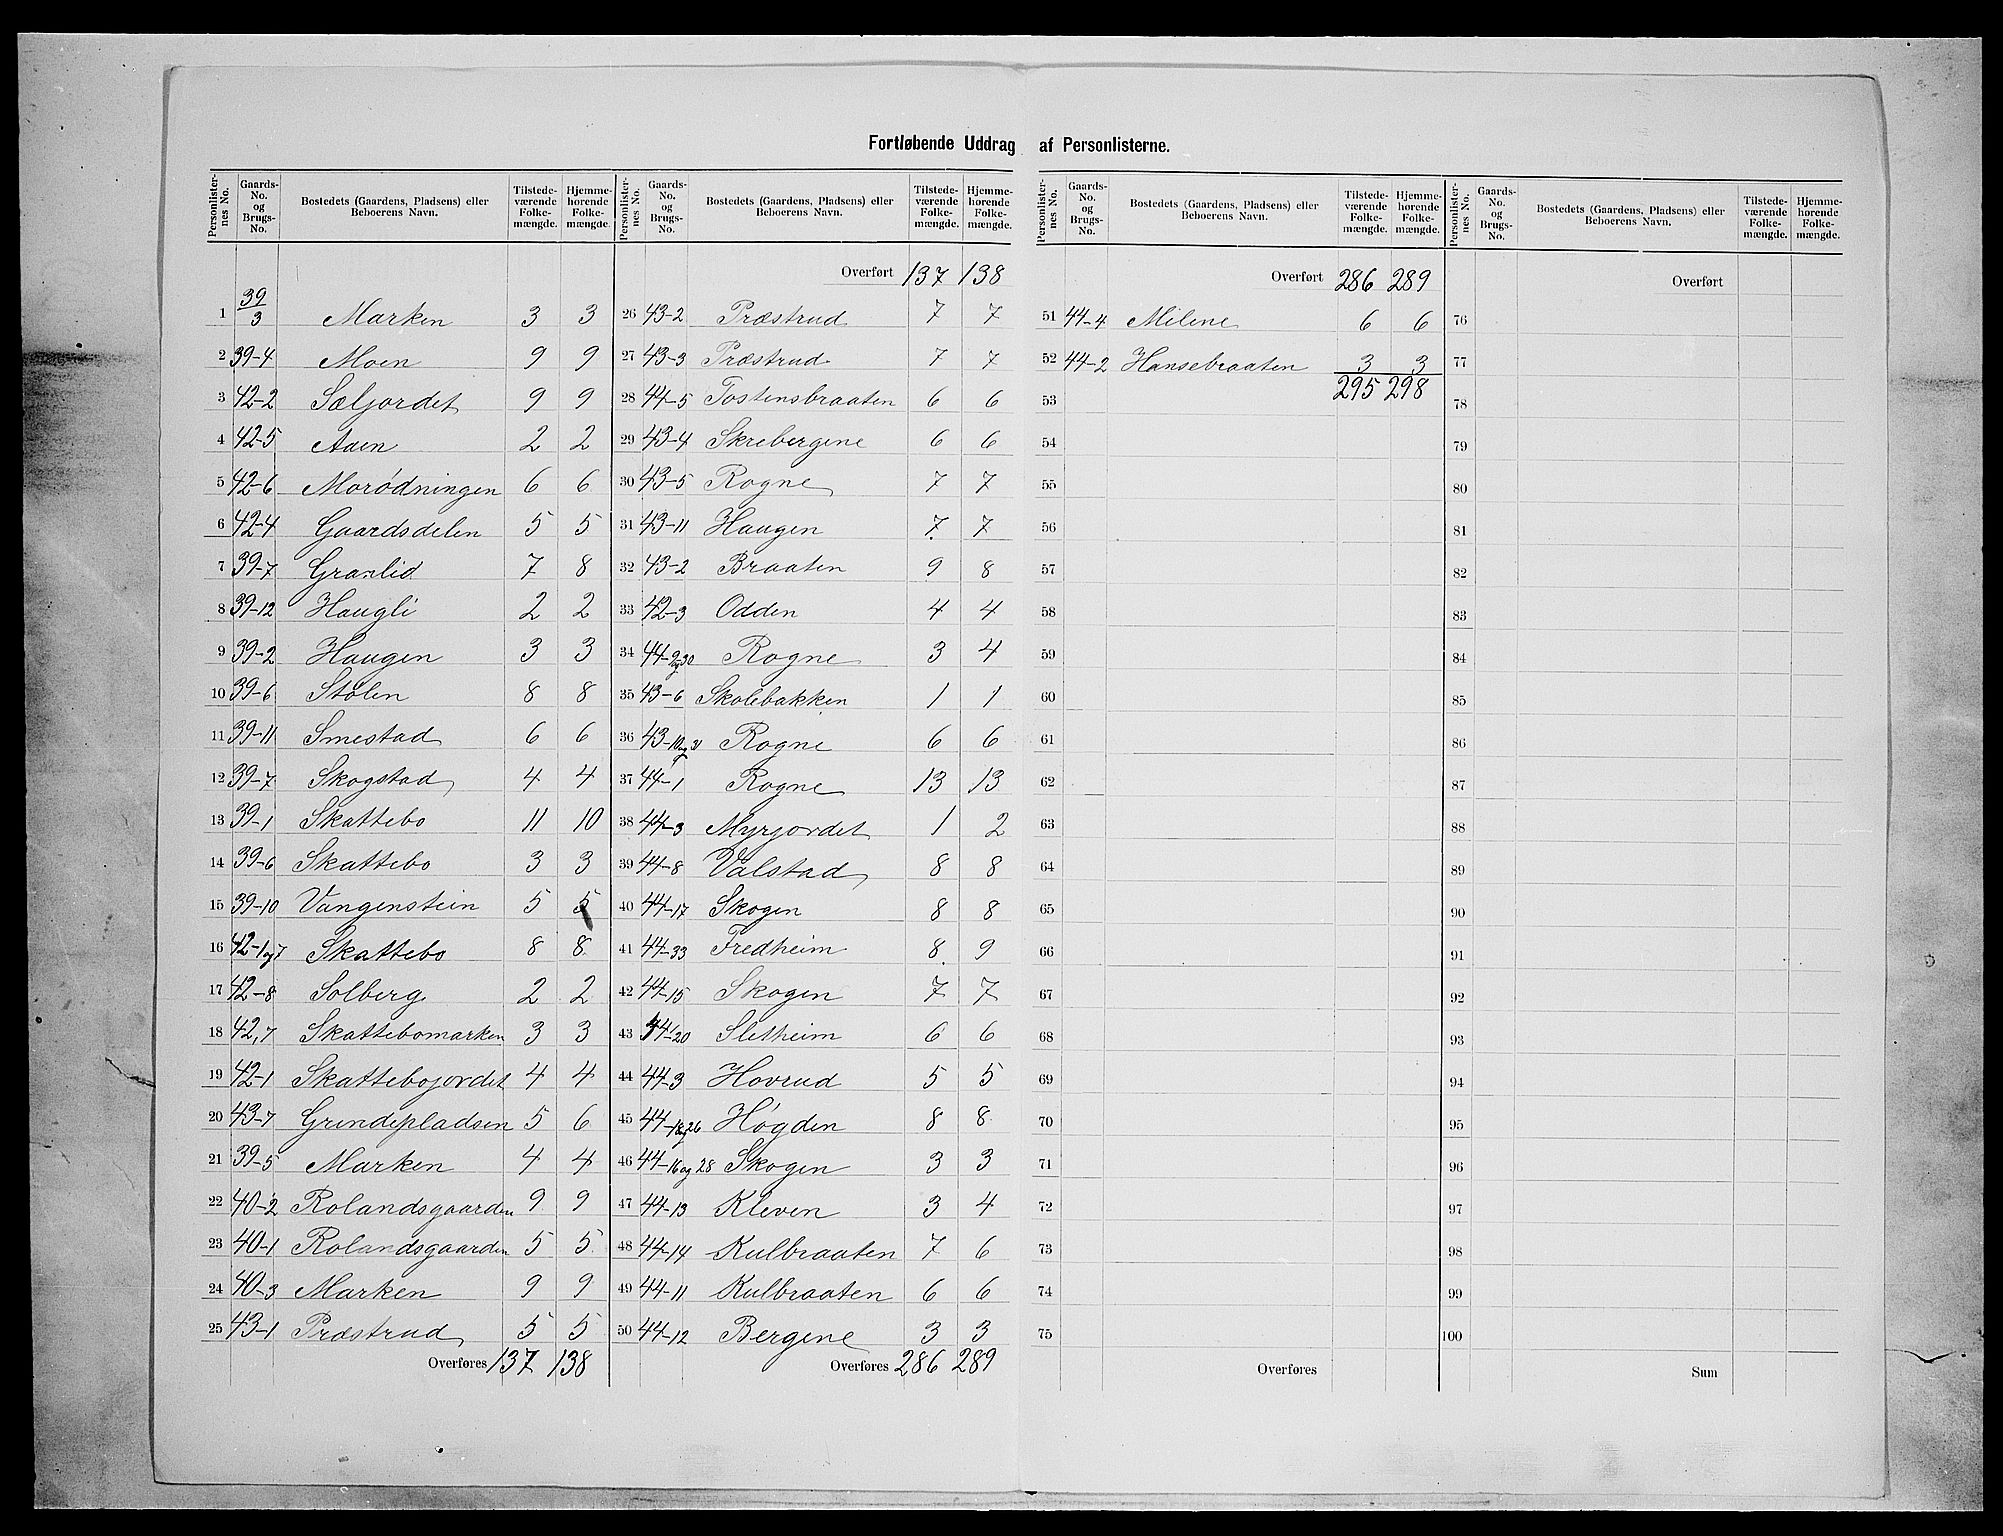 Fortløbende Uddrag af Personlisterne.
Personlisternes No. | Gaards-No. og Brugs-No. | Bostedets (Gaardens, Pladsens) eller Beboerens Navn. | Tilstedeværende Folkemængde. | Hjemmehørende Folkemængde.
1 39/3 Marken 3 3
2 39-4 Moen 9 9
3 42-2 Sæljordet 9 9
4 42-5 Aaen 2 2
5 42-6 Morødningen 6 6
6 42-4 Gaardsdelen 5 5
7 39-7 Granlid 7 8
8 39-12 Haugli 2 2
9 39-2 Haugen 3 3
10 39-6 Stølen 8 8
11 39-11 Smestad 6 6
12 39-7 Skogstad 4 4
13 39-1 Skattebo 11 10
14 39-6 Skattebo 3 3
15 39-10 Vangenstein 5 5
16 42-1 og 7 Skattebo 8 8
17 42-8 Solberg 2 2
18 42,7 Skattebomarken 3 3
19 42-1 Skattebojordet 4 4
20 43-7 Grindepladsen 5 6
21 39-5 Marken 4 4
22 40-2 Rolandsgaarden 9 9
23 40-1 Rolandsgaarden 5 5
24 40-3 Marken 9 9
25 43-1 Præstrud 5 5
Overføres 137 138
Personlisternes No. | Gaards-No. og Brugs-No. | Bostedets (Gaardens, Pladsens) eller Beboerens Navn. | Tilstedeværende Folkemængde. | Hjemmehørende Folkemængde.
Overført 137 138
26 43-2 Præstrud 7 7
27 43-3 Præstrud 7 7
28 44-5 Tostensbraaten 6 6
29 43-4 Skrebergene 6 6
30 43-5 Rogne 7 7
31 43-11 Haugen 7 7
32 43-2 Braaten 9 8
33 42-3 Odden 4 4
34 44-9 og 30 Rogne 3 4
35 43-6 Skolebakken 1 1
36 43-10 og 31 Rogne 6 6
37 44-1 Rogne 13 13
38 44-3 Myrjordet 1 2
39 44-8 Valstad 8 8
40 44-17 Skogen 8 8
41 44-33 Fredheim 8 9
42 44-15 Skogen 7 7
43 44-20 Sletheim 6 6
44 44-3 Hovrud 5 5
45 44-18 og 26 Høgden 8 8
46 44-16 og 28 Skogen 3 3
47 44-13 Kleven 3 4
48 44-14 Kulbraaten 7 6
49 44-11 Kulbraaten 6 6
50 44-12 Bergene 3 3
Overføres 286 289
Personlisternes No. | Gaards-No. og Brugs-No. | Bostedets (Gaardens, Pladsens) eller Beboerens Navn. | Tilstedeværende Folkemængde. | Hjemmehørende Folkemængde.
Overført 286 289
51 44-4 Milene 6 6
52 44-2 Hansebraaten 3 3
53 295 298
54
55
56
57
58
59
60
61
62
63
64
65
66
67
68
69
70
71
72
73
74
75
Overføres
Personlisternes No. | Gaards-No. og Brugs-No. | Bostedets (Gaardens, Pladsens) eller Beboerens Navn. | Tilstedeværende Folkemængde. | Hjemmehørende Folkemængde.
Overført
76
77
78
79
80
81
82
83
84
85
86
87
88
89
90
91
92
93
94
95
96
97
98
99
100
Sum